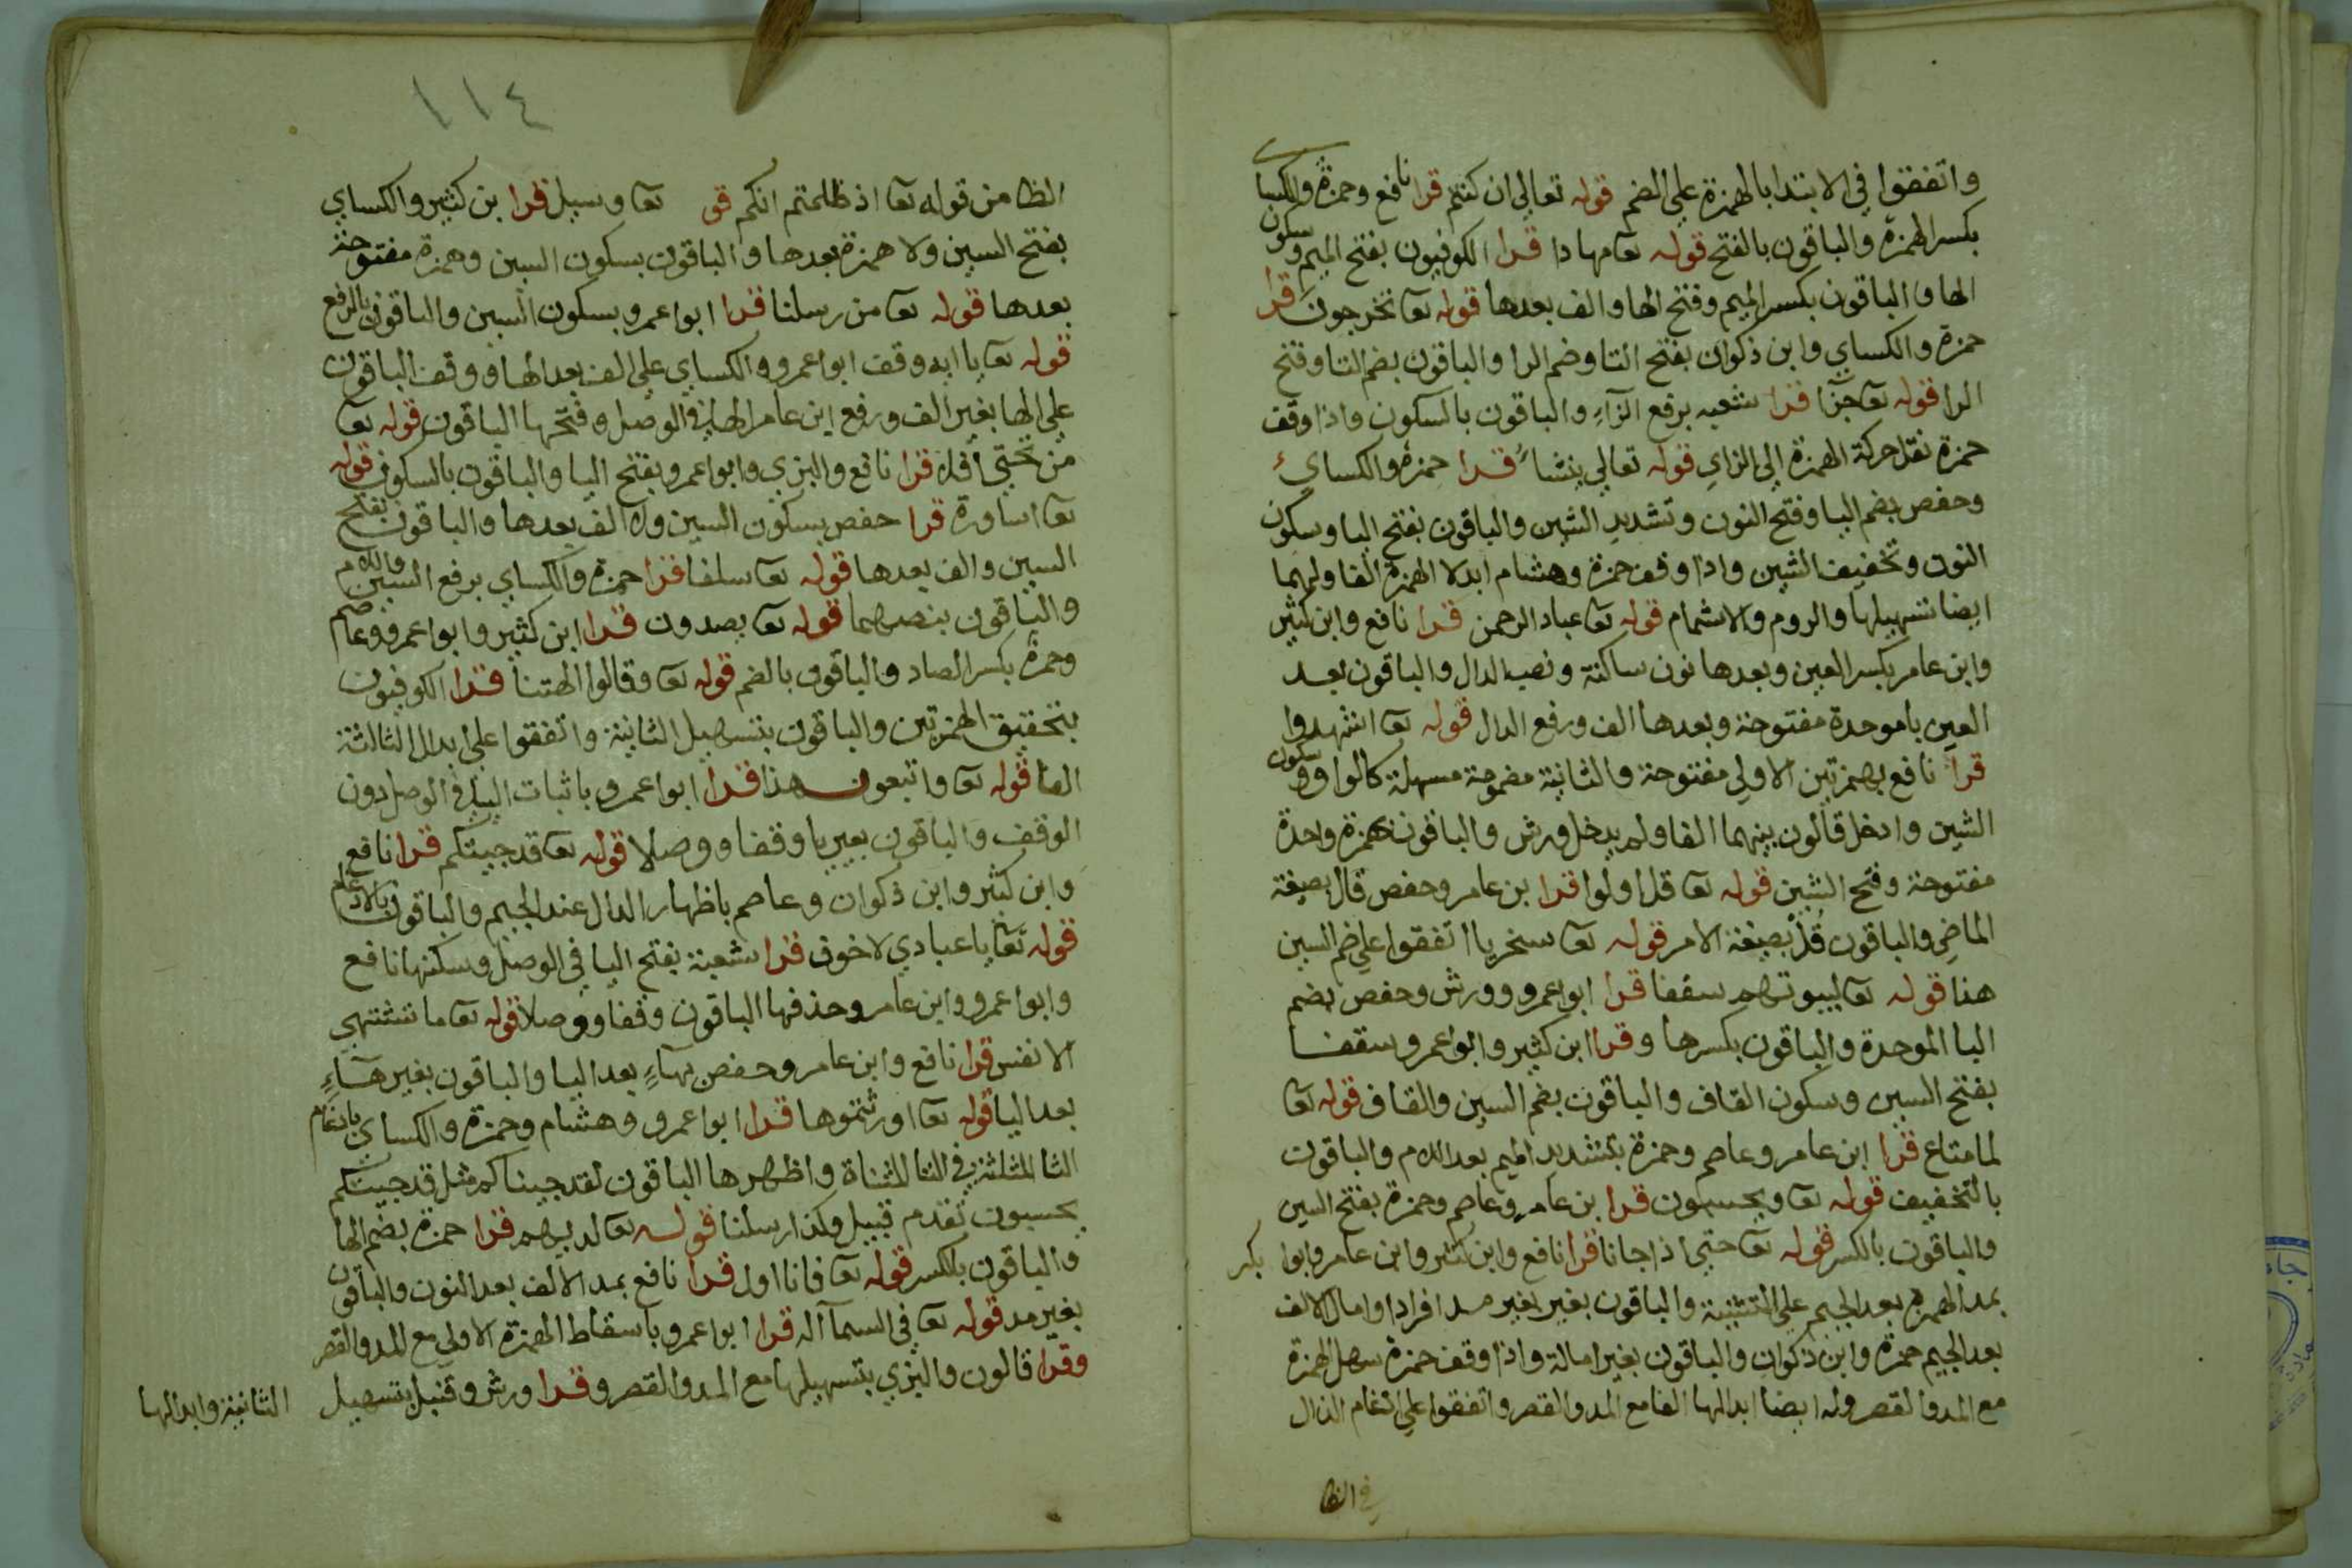 واتفقوا في الابتدا بالهمزة علي الضم قوله تعالي ان كنتم قرا نافع وحمزة والكسا
ي بكسر الهمزة والباقون بالفتح قوله تعا مهادا قرا الكوفيون بفتح الميم وسكون
الها والباقون بكسر الميم وفتح الها والف بعدها قوله تعا تخرجون قرا
حمزة والكساي وابن ذكوان بفتح التا وضم الرا والباقون بضم التا وفتح
الرا قوله تعا جزأ قرا شعبه برفع الزاء والباقون بالسكون واذا وقف
حمزة نقل حركة الهمزة الي الزاي قوله تعالي ينشأ قرا حمزة والكساي
وحفص بضم اليا وفتح النون وتشديد الشين والباقون بفتح اليا وسكون
النون وتخفيف الشين واذا وقف حمزة وهشام ابدلا الهمزة الفا ولهما
ايضا تسهيلها والروم والاشمام قوله تعا عباد الرحمن قرا نافع وابن كثير
وابن عامر بكسر العين وبعدها نون ساكنة ونصب الدال والباقون بعد
العين با موحدة مفتوحة وبعدها الف ورفع الدال قوله تعا اشهدوا
قرا نافع بهمزتين الاولي مفتوحة والثانية مضمومة مسهلة كالواو وسكون
الشين وادخل قالون بينهما الفا ولم يدخل ورش والباقون بهمزة واحدة
مفتوحة وفتح الشين قوله تعا قل اولوا قرا بن عامر وحفص قال بصيغة
الماضي والباقون قل بصيغة الامر قوله تعا سخريا اتفقوا علي ضم السين
هنا قوله تعا لبيوتهم سقفا قرا ابو اعمرو وورش وحفص بضم
البا الموحدة والباقون بكسرها وقرا ابن كثير وابو اعمرو سقفا
بفتح السين وسكون القاف والباقون بضم السين والقاف قوله تعا
لما متاع قرا ابن عامر وعاصم وحمزة بتشديد الميم بعد اللام والباقون
بالتخفيف قوله تعا ويحسبون قرا بن عامر وعاصم وحمزة بفتح السين
والباقون بالكسر قوله تعا حتي اذا جانا قرا نافع وابن كثير وابن عامر وابوا بكر
بمد الهمزة بعد الجيم علي التثنية والباقون بغير بغير مد افرادا وامال الالف
بعد الجيم حمزة وابن ذكوان والباقون بغير امالة واذا وقف حمزة سهل الهمزة
مع المد والقصر وله ايضا ابدالها الفا مع المد والقصر واتفقوا علي ادغام الذال
في الظا
١١٤
الظا من قوله تعا اذ ظلمتم انكم قو تعا وسيل قرا بن كثير والكساي
بفتح السين ولا همزة بعدها والباقون بسكون السين وهمزة مفتوحة
بعدها قوله تعا من رسلنا قرا ابوا عمرو بسكون السين والباقون بالرفع
قوله تعا يا ايه وقف ابوا عمرو والكساي علي الف بعد الها ووقف الباقون
علي الها بغير الف ورفع ابن عامر الها في الوصل وفتحها الباقون قوله تعا
من تحتي أفلا قرا نافع والبزي وابوا عمرو بفتح اليا والباقون بالسكون قوله
تعا اساورة قرا حفص بسكون السين ولا الف بعدها والباقون بفتح
السين والف بعدها قوله تعا سلفا قرا حمزة والكساي برفع السين واللام
والباقون بنصبهما قوله تعا يصدون قرا ابن كثير وابوا عمرو وعاصم
وحمزة بكسر الصاد والباقون بالضم قوله تعا وقالوا الهتنا قرا الكوفيون
بتحقيق الهمزتين والباقون بتسهيل الثانية واتفقوا علي ابدال الثالثة
الفا قوله تعا واتبعون هذا قرا ابوا عمرو باثبات اليا في الوصل دون
الوقف والباقون بغير يا وقفا ووصلا قوله تعا قد جيتكم قرا نافع
وابن كثير وابن ذكوان وعاصم باظهار الدال عند الجيم والباقون بالادغام
قوله تعا يا عبادي لا خوف قرا شعبة بفتح اليا في الوصل وسكنها نافع
وابوا عمرو وابن عامر وحذفها الباقون وقفا ووصلا قوله تعا ما تشتهي
الانفس قرا نافع وابن عامر وحفص بهاء بعد اليا والباقون بغير هاء
بعد اليا قوله تعا اورثتموها قرا ابوا عمرو وهشام وحمزة والكساي بادغام
الثا المثلثة في التا المثناة واظهرها الباقون لقد جيناكم مثل قد جيتكم
يحسبون تقدم قبيل وكذا رسلنا قوله تعا لديهم قرا حمزة بضم الها
والباقون بالكسر قوله تعا فانا اول قرا نافع بمد الالف بعد النون والباقون
بغير مد قوله تعا في السما اله قرا ابوا عمرو باسقاط الهمزة الاولي مع المد والقصر
وقرا قالون والبزي بتسهيلها مع المد والقصر وقرا ورش وقنبل بتسهيل
الثانية وابدالها